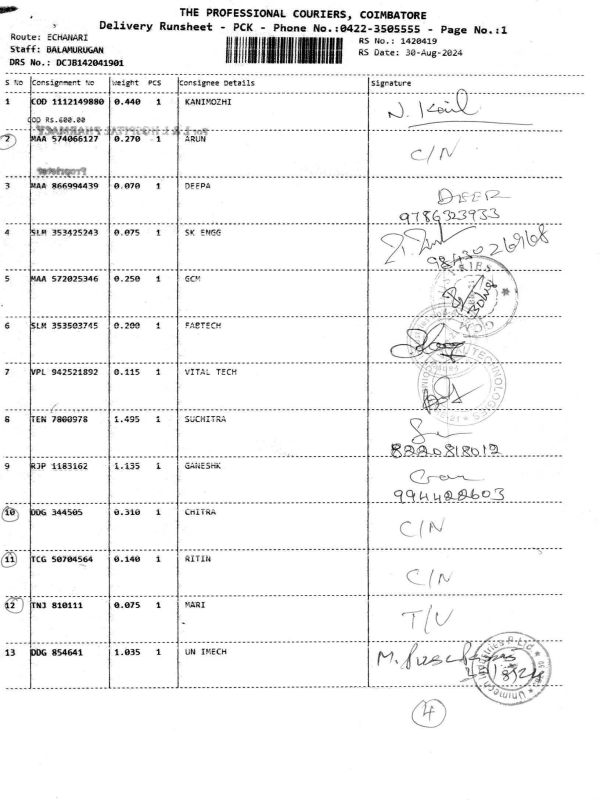 THE PROFESSIONAL COURIERS, COIMBATORE
Delivery Runsheet - PCK - Phone No.:0422-3505555 - Page No.:1
Route: ECHANARI
RS No.: 1420419
Staff: BALAMURUGAN
RS Date: 30-Aug-2024
DRS No.: DCJB142041901
S No Consignment No Weight PCS Consignee Details Signature
1 COD 1112149880 0.440 1 KANIMOZHI N. Kavil
COD Rs.600.00
2 MAA 574066127 0.270 1 ARUN C/N
3 MAA 866994439 0.070 1 DEEPA DEEP
9786323933
4 SLM 353425243 0.075 1 SK ENGG
9843026968
5 MAA 572025346 0.250 1 GCM
6 SLM 353503745 0.200 1 FABTECH
7 VPL 942521892 0.115 1 VITAL TECH
8 TEN 7800978 1.495 1 SUCHITRA
8220818012
9 RJP 1183162 1.135 1 GANESHK
9944422603
10 DDG 344505 0.310 1 CHITRA C/N
11 TCG 50704564 0.140 1 RITIN C/N
12 TNJ 810111 0.075 1 MARI T/U
13 DDG 854641 1.035 1 UN IMECH
4